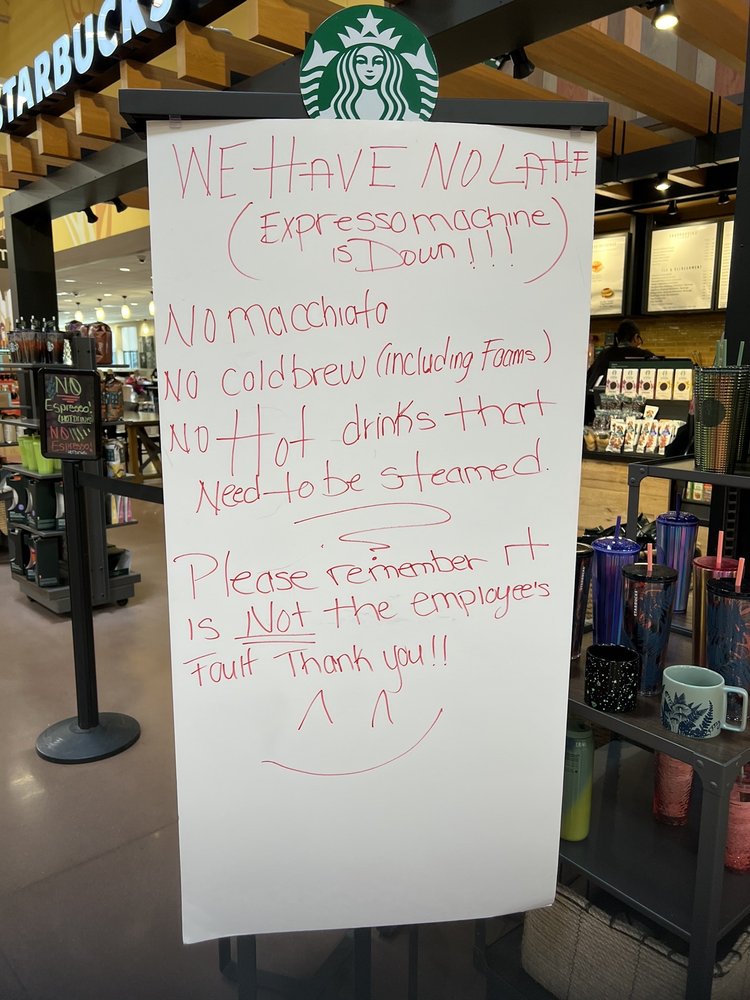 STARBUCKS
WE HAVE NO LATTE
(Expresso machine
is Down!!!)
NO macchiato
NO coldbrew (including Foams)
NO Hot drinks that
Need to be steamed.
Please remember it
is Not the employee's
Fault Thank you!!
NO
Espresso!
NO
Espresso!